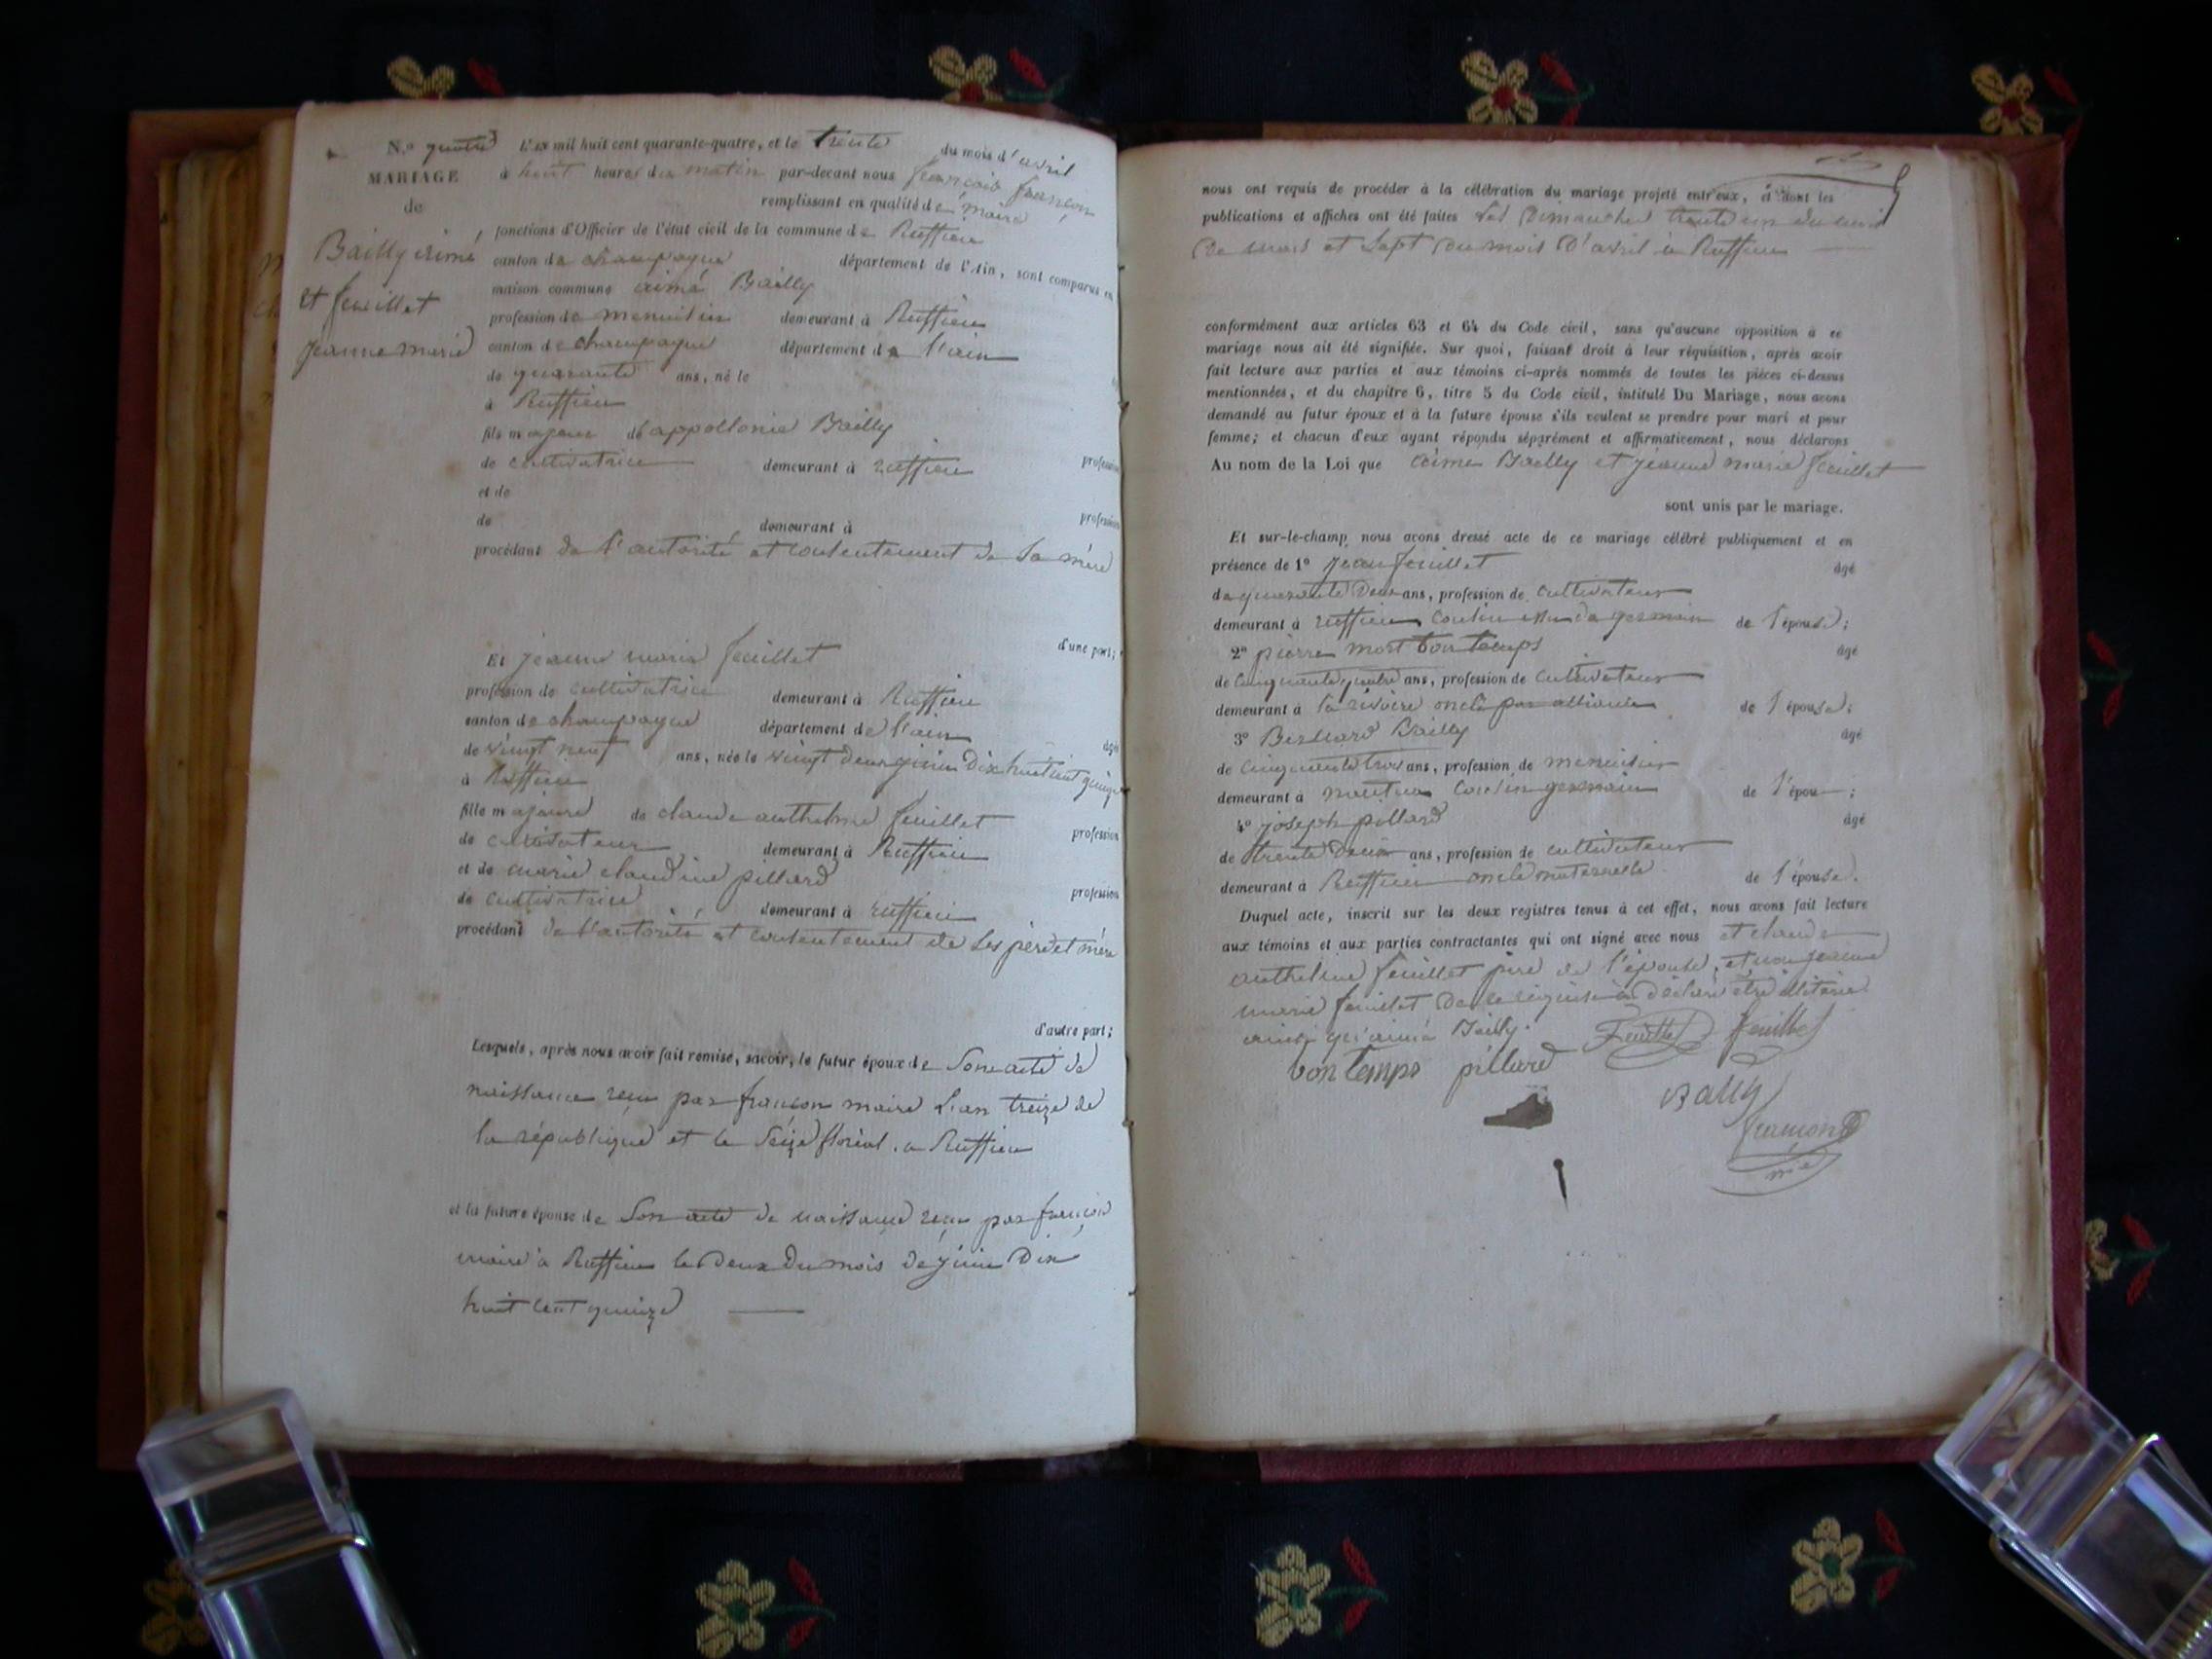 N.º quatre
MARIAGE
de
Bailly aimé
et feuillet
jeanne marie
L'an mil huit cent quarante-quatre, et le trente du mois d'avril
à huit heures du matin par-devant nous françois françon
remplissant en qualité de maire
fonctions d'Officier de l'état civil de la commune de Ruffieu
canton de champagne département de l'Ain, sont comparus en
maison commune aimé Bailly
profession de menuisier demeurant à Ruffieu
canton de champagne département de l'ain
de quarante ans, né le
à Ruffieu
fils majeur de appollonie Bailly
profession
de cultivatrice demeurant à ruffieu
et de
profession
de demeurant à
procédant de l'autorité et consentement de sa mère
d'une part;
Et jeanne marie feuillet
profession de cultivatrice demeurant à Ruffieu
canton de champagne département de l'ain
âgé
de vingt neuf ans, née le vingt deux juin dix huit cent quinze
à Ruffieu
fille majeure de claude anthelme feuillet
profession
de cultivateur demeurant à Ruffieu
et de marie claudine pillard
profession
de cultivatrice demeurant à ruffieu
procédant de l'autorité et consentement de ses père et mère
d'autre part;
Lesquels, après nous avoir fait remise, savoir, le futur époux de son acte de
naissance reçu par françon maire l'an treize de
la république et le seize floréal. a Ruffieu
et la future épouse de son acte de naissance reçu par françon
maire à Ruffieu le deux du mois de juin dix
huit cent quinze
nous ont requis de procéder à la célébration du mariage projeté entr'eux, et dont les
publications et affiches ont été faites les dimanches trente un du mois
de mars et sept du mois d'avril à Ruffieu
conformément aux articles 63 et 64 du Code civil, sans qu'aucune opposition à ce
mariage nous ait été signifiée. Sur quoi, faisant droit à leur réquisition, après avoir
fait lecture aux parties et aux témoins ci-après nommés de toutes les pièces ci-dessus
mentionnées, et du chapitre 6, titre 5 du Code civil, intitulé Du Mariage, nous avons
demandé au futur époux et à la future épouse s'ils veulent se prendre pour mari et pour
femme; et chacun d'eux ayant répondu séparément et affirmativement, nous déclarons
Au nom de la Loi que aimé Bailly et jeanne marie feuillet
sont unis par le mariage.
Et sur-le-champ nous avons dressé acte de ce mariage célébré publiquement et en
présence de 1º jean feuillet âgé
de quarante deux ans, profession de cultivateur
demeurant à ruffieu cousin issu de germain de l'épouse;
2º pierre mort bontemps âgé
de cinquante quatre ans, profession de cultivateur
demeurant à la rivoire oncle par alliance de l'épouse;
3º Bernard Bailly âgé
de cinquante trois ans, profession de menuisier
demeurant à nantua cousin germain de l'épou ;
4º joseph pillard âgé
de trente deux ans, profession de cultivateur
demeurant à Ruffieu oncle maternelle de l'épouse.
Duquel acte, inscrit sur les deux registres tenus à cet effet, nous avons fait lecture
aux témoins et aux parties contractantes qui ont signé avec nous et claude
anthelme feuillet père de l'épouse, et non jeanne
marie feuillet de ce requise a déclaré être illitérée
ainsi qu'aimé Bailly.
Feuillet feuillet
bontemps pillard
Bailly
françon
mre